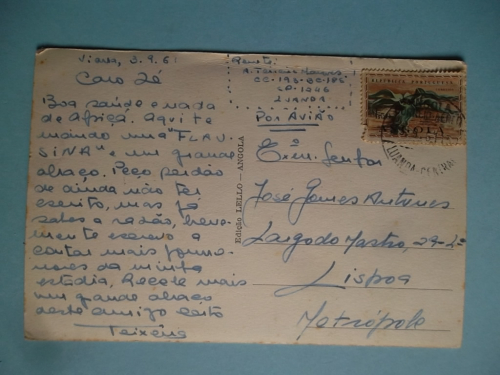 Viana, 3.9.61
Caro Zé
Boa saúde e nada
de Africa. Aqui te
mando uma "FLAU-
SINA" e um grande
abraço. Peço perdão
de ainda não ter
escrito, mas já
sabes a razão, breve-
mente escrevo a
contar mais pormo-
nores da minha
estadia. Recebe mais
um grande abraço
deste amigo certo
Teixeira
Remete:
LUANDA
POR AVIÃO
Exm. Senhor
José Gomes Antunes
Largo do Mastro, 29-2º
Lisboa
Metrópole
Edição LELLO — ANGOLA
REPÚBLICA PORTUGUESA
ANGOLA
LUANDA-CENTRAL